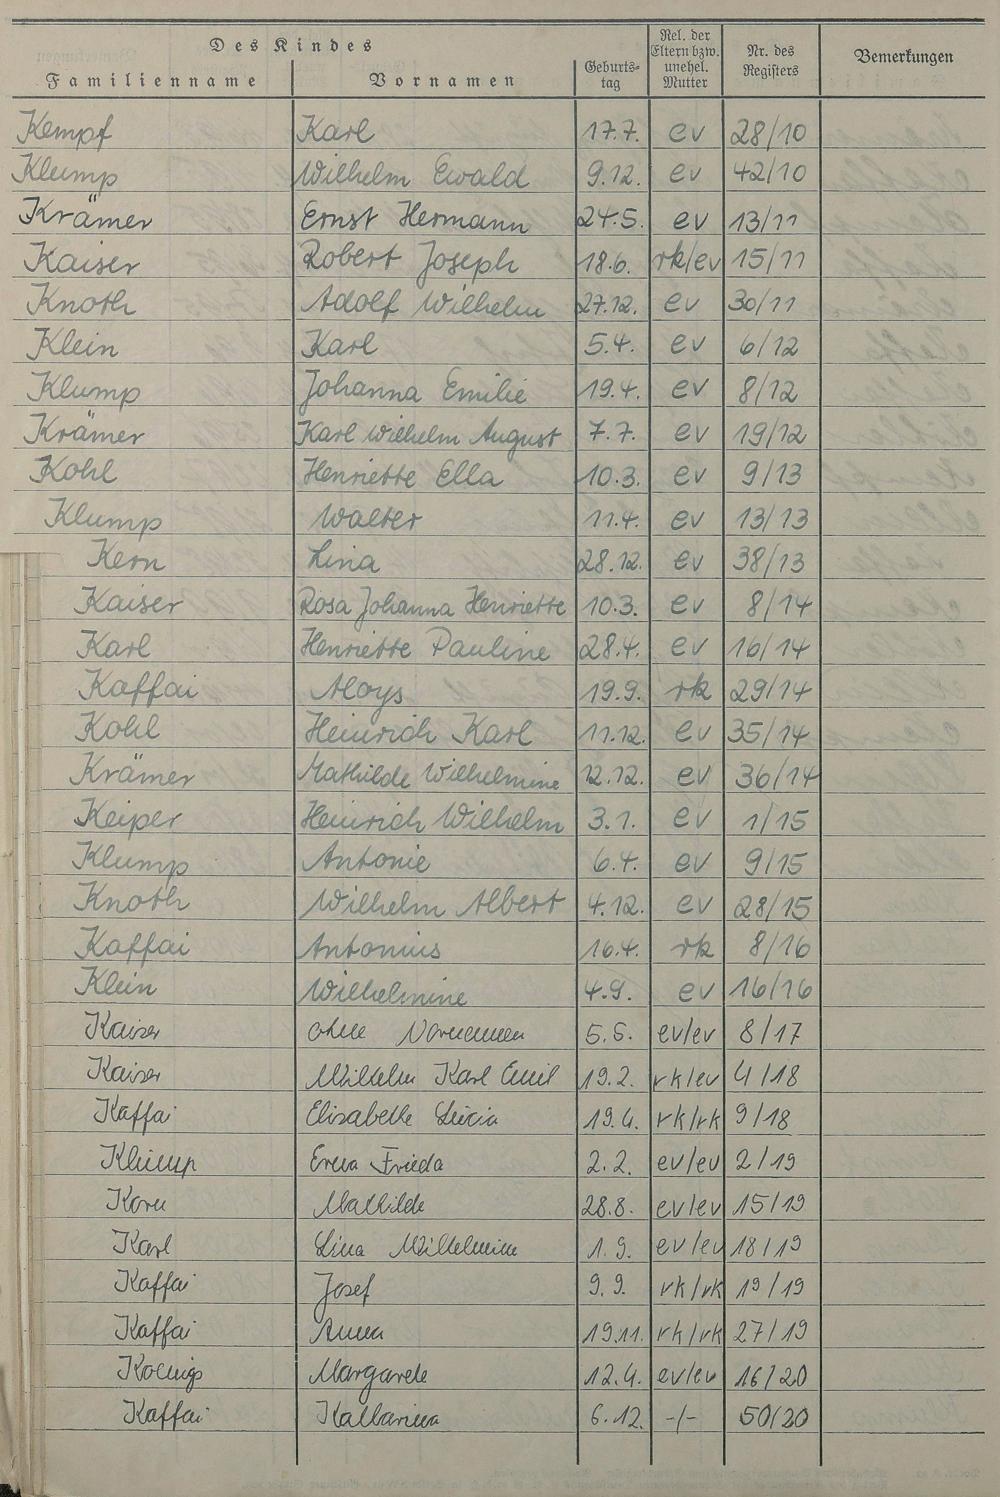 Des Kindes
Familienname Vornamen Geburts-tag Rel. der Eltern bzw. unehel. Mutter Nr. des Registers Bemerkungen
Kempf Karl 17.7. ev 28/10
Klump Wilhelm Ewald 9.12. ev 42/10
Krämer Ernst Hermann 24.5. ev 13/11
Kaiser Robert Joseph 18.6. rk/ev 15/11
Knoth Adolf Wilhelm 27.12. ev 30/11
Klein Karl 5.4. ev 6/12
Klump Johanna Emilie 19.4. ev 8/12
Krämer Karl Wilhelm August 7.7. ev 19/12
Kohl Henriette Ella 10.3. ev 9/13
Klump Walter 11.4. ev 13/13
Kern Lina 28.12. ev 38/13
Kaiser Rosa Johanna Henriette 10.3. ev 8/14
Karl Henriette Pauline 28.4. ev 16/14
Kaffai Aloys 19.9. rk 29/14
Kohl Heinrich Karl 11.12. ev 35/14
Krämer Mathilde Wilhelmine 12.12. ev 36/14
Keiper Heinrich Wilhelm 3.1. ev 1/15
Klump Antonie 6.4. ev 9/15
Knoth Wilhelm Albert 4.12. ev 28/15
Kaffai Antonius 16.4. rk 8/16
Klein Wilhelmine 4.9. ev 16/16
Kaiser ohne Vornamen 5.5. ev/ev 8/17
Kaiser Wilhelm Karl Emil 19.2. rk/ev 4/18
Kaffai Elisabethe Lucia 19.4. rk/rk 9/18
Klump Erna Frieda 2.2. ev/ev 2/19
Korn Mathilde 28.8. ev/ev 15/19
Karl Lina Wilhelmine 1.9. ev/ev 18/19
Kaffai Josef 9.9. rk/rk 19/19
Kaffai Anna 19.11. rk/rk 27/19
Koenigs Margarete 12.4. ev/ev 16/20
Kaffai Katharina 6.12. -/- 50/20